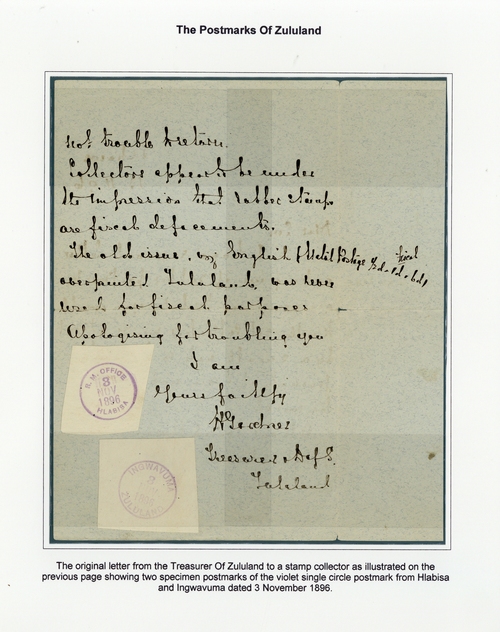 The Postmarks Of Zululand
not trouble to return.
Collectors appear to be under
the impression that rubber stamps
are fiscal defacements.
The old issue, viz English & Natal Postage
fiscal
overprinted Zululand, was never
used for fiscal purposes
Apologising for troubling you
I am
Yours faithfly
Treasurer
Zululand
R. M. OFFICE
3
NOV
1896
HLABISA
INGWAVUMA
ZULULAND
The original letter from the Treasurer Of Zululand to a stamp collector as illustrated on the
previous page showing two specimen postmarks of the violet single circle postmark from Hlabisa
and Ingwavuma dated 3 November 1896.